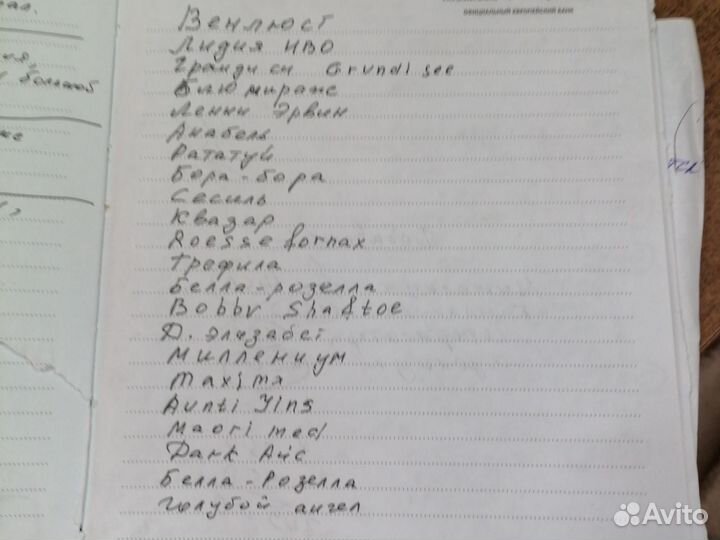 ОФИЦИАЛЬНЫЙ ЕВРОПЕЙСКИЙ БАНК
большой
Венлюст
Лидия НВО
Гранди си Grundi see
Блю мираж
Ленни Эрвин
Анабель
Рататуй
Бора-бора
Сесиль
Квазар
Roesse fornax
Трефила
Белла-розелла
Bobby Shaftoe
Д. Элизабет
Миллениум
Maxima
Aunti Jins
Maori med
Dark Айс
Белла-Розелла
Голубой ангел
Avito